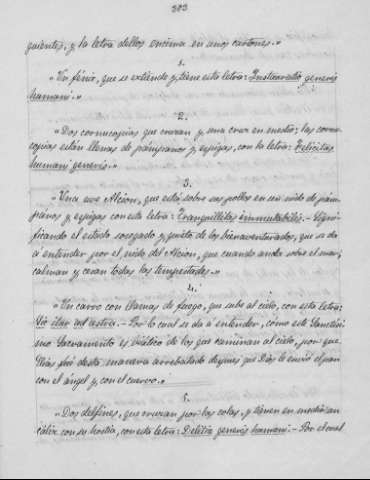 303
guientes, y la letra dellos encima en unos cartones.»
1.
«Un fénix, que se extiende y tiene esta letra: Instauratio generis
humani.»
2.
«Dos cornucopias que cruzan y una cruz en medio; las cornu-
copias están llenas de pámpanos y espigas, con la letra: Felicitas
humani generis.»
3.
«Una ave Alcion, que está sobre sus pollos en un nido de pám-
panos y espigas con esta letra: Tranquillitas immutabilis.- Signi-
ficando el estado sosegado y quieto de los bienaventurados, que se da
á entender por el nido del Alcion, que cuando anda sobre el mar,
calman y cesan todas las tempestades.»
4.
«Un carro con llamas de fuego, que sube al cielo, con esta letra:
Sic itur ad astra.- Por lo cual se da á entender, cómo este Santísi-
mo Sacramento es viático de los que caminan al cielo, por que
Elías fué desta manera arrebatado despues que Dios le envió el pan
con el ángel y con el cuervo.»
5.
«Dos delfines, que cruzan por las colas, y tienen en medio un
cáliz con su hostia, con esta letra: Delitia generis humani.- Por el cual